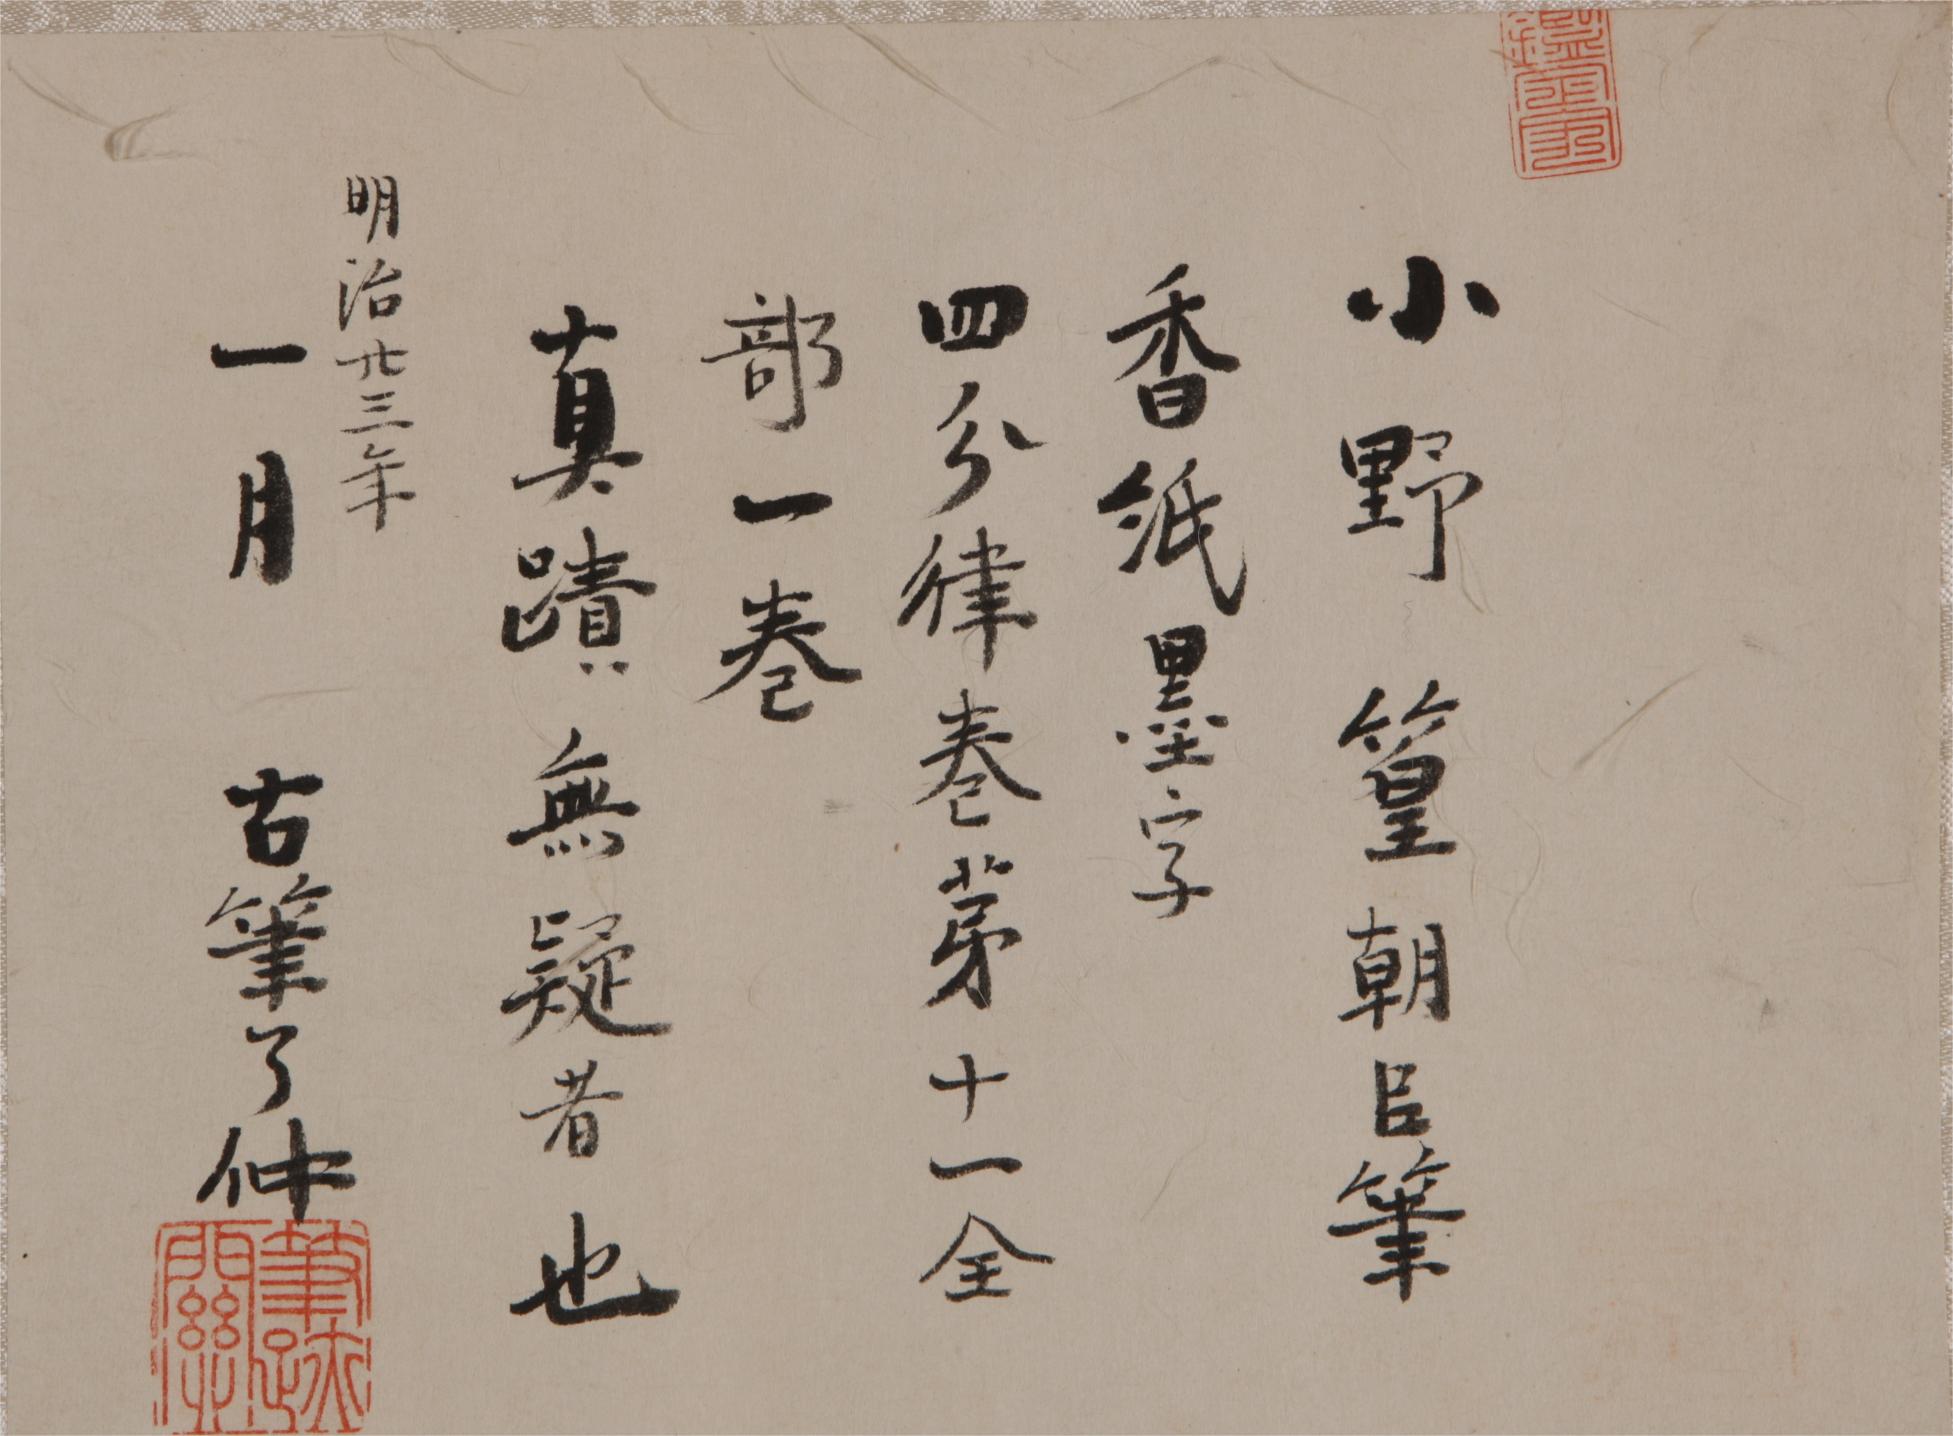 小野篁朝臣筆
香紙墨字
四分律卷第十一全
部一卷
真蹟無疑者也
明治廿三年
一月 古筆了仲